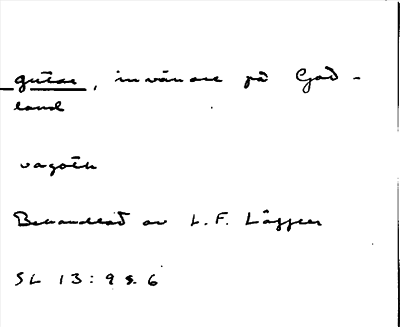 gutar, invånare på Got-
land
vagoth
Behandlat av L. F. Läffler
SL 13:9 s. 6